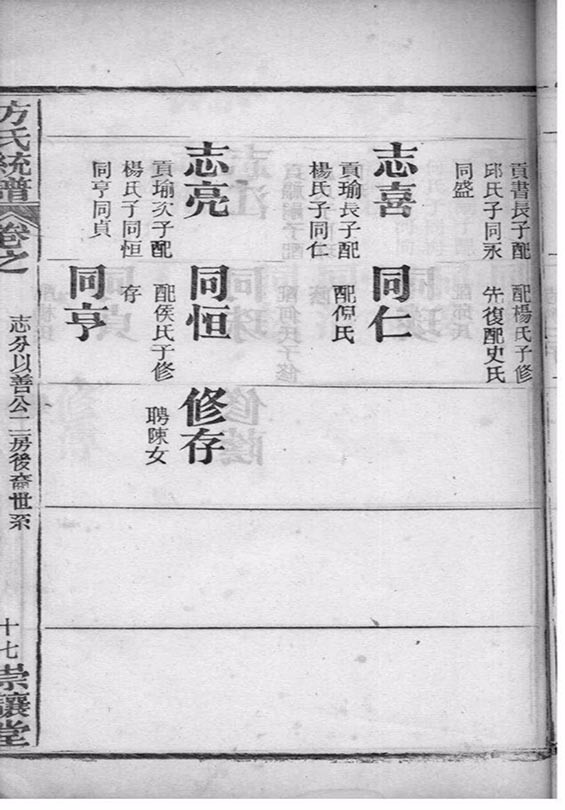 貢書長子配
邱氏子同永
同盛
配楊氏子修
先復配史氏
志喜
貢瑜長子配
楊氏子同仁
同仁
配倪氏
志亮
貢瑜次子配
楊氏子同恒
同亨同貞
同恒
配侯氏子修
存
修存
聘陳女
同亨
方氏統譜
卷之
志分以善公二房後裔世系
十七
崇讓堂